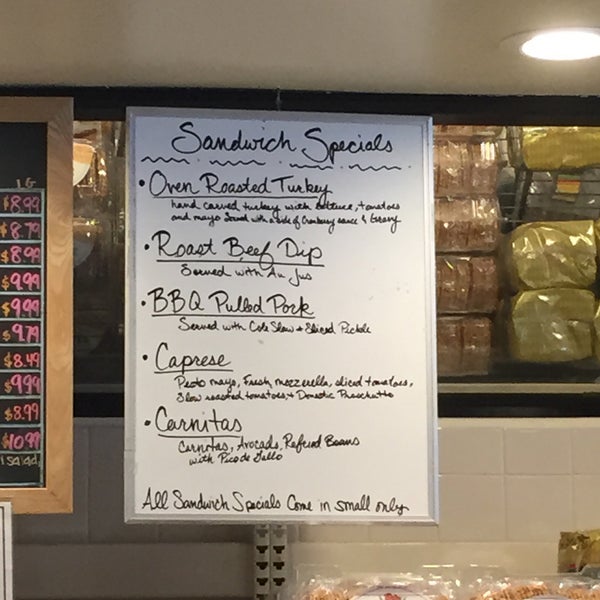 Sandwich Specials
• Oven Roasted Turkey
hand carved turkey with lettuce, tomatoes
and mayo Served with a side of Cranberry sauce & Gravy
• Roast Beef Dip
Served with Au Jus
• BBQ Pulled Pork
Served with Cole Slaw + Sliced Pickle
• Caprese
Pesto mayo, Fresh mozzerella, sliced tomatoes,
Slow roasted tomatoes + Domestic Proschutto
• Carnitas
Carnitas, Avocado, Refried Beans
with Pico de Gallo
All Sandwich Specials Come in small only
LG
$8.99
$8.79
$8.99
$9.99
$9.99
$9.79
$8.49
$9.99
$8.99
$10.99